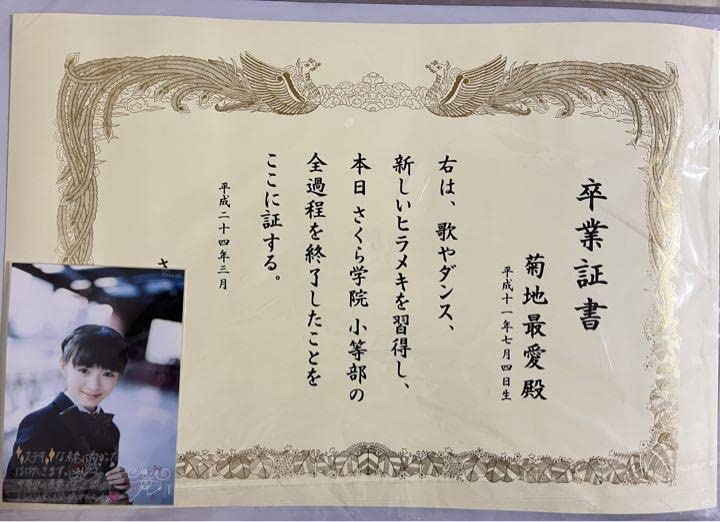 卒業証書
菊地最愛殿
平成十一年七月四日生
右は、歌やダンス、
新しいヒラメキを習得し、
本日 さくら学院 小等部の
全過程を終了したことを
ここに証する。
平成二十四年三月
さ
ステキな未来に向かって
はばたきます。